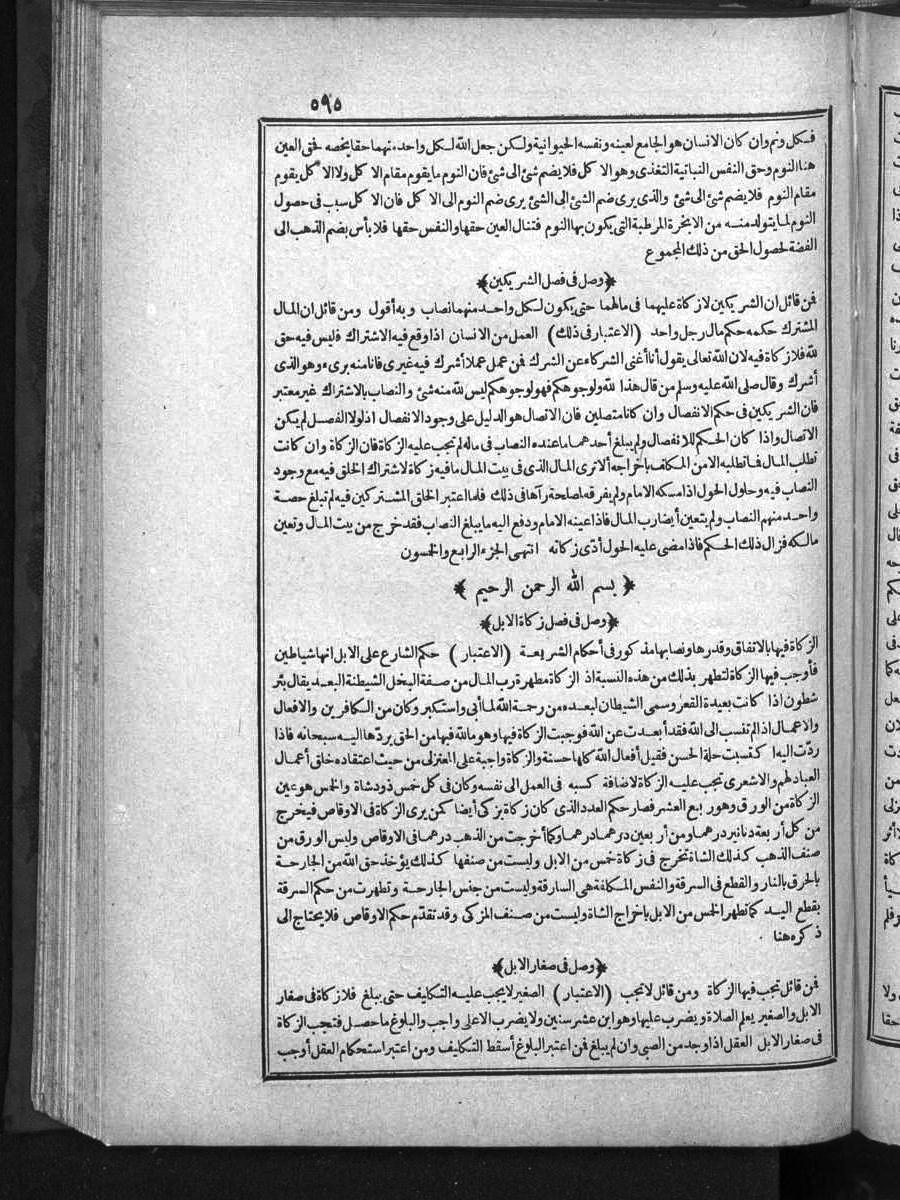 ٥٩٥
فكل ونم وان كان الانسان هو الجامع لعينه ونفسه الحيوانية ولكن جعل الله لكل واحد منهما حقا يخصه فحق العين
هنا النوم وحق النفس النباتية التغذى وهو الا كل فلا يضم شئ الى شئ فان النوم ما يقوم مقام الا كل ولا الا كل يقوم
مقام النوم فلا يضم شئ الى شئ والذى يرى ضم الشئ الى الشئ يرى ضم النوم الى الا كل فان الا كل سبب فى حصول
النوم لما يتولد منه من الابخرة المرطبة التى يكون بها النوم فتنال العين حقها والنفس حقها فلا بأس بضم الذهب الى
الفضة لحصول الحق من ذلك المجموع
﴿وصل فى فصل الشريكين﴾
فمن قائل ان الشريكين لا زكاة عليهما فى مالهما حتى يكون لكل واحد منهما نصاب وبه أقول ومن قائل ان المال
المشترك حكمه حكم مال رجل واحد (الاعتبار فى ذلك) العمل من الانسان اذا وقع فيه الاشتراك فليس فيه حق
لله فلا زكاة فيه لان الله تعالى يقول أنا أغنى الشركاء عن الشرك فمن عمل عملا أشرك فيه غيرى فانا منه برىء وهو الذى
أشرك وقال صلى الله عليه وسلم من قال هذا لله ولوجوهكم فهو لوجوهكم ليس لله منه شئ والنصاب بالاشتراك غير معتبر
فان الشريكين فى حكم الانفصال وان كانا متصلين فان الاتصال هو الدليل على وجود الانفصال اذ لولا الفصل لم يكن
الاتصال واذا كان الحكم للانفصال ولم يبلغ أحدهما ما عنده النصاب فى ماله لم تجب عليه الزكاة فان الزكاة وان كانت
تطلب المال فما تطلبه الا من المكلف باخراجه ألا ترى المال الذى فى بيت المال ما فيه زكاة لاشتراك الخلق فيه مع وجود
النصاب فيه وحلول الحول اذا مسكه الامام ولم يفرقه لمصلحة رآها فى ذلك فلما اعتبر الخلق المشتركين فيه لم تبلغ حصة
واحد منهم النصاب ولم يتعين أيضا رب المال فاذا عينه الامام ودفع اليه ما يبلغ النصاب فقد خرج من بيت المال وتعين
مالكه فزال ذلك الحكم فاذا مضى عليه الحول أدّى زكاته انتهى الجزء الرابع والخمسون
﴿ بسم الله الرحمن الرحيم ﴾
﴿وصل فى فصل زكاة الابل﴾
الزكاة فيها بالاتفاق وقدرها ونصابها مذكور فى أحكام الشريعة (الاعتبار) حكم الشارع على الابل انها شياطين
فأوجب فيها الزكاة لتطهر بذلك من هذه النسبة اذ الزكاة مطهرة رب المال من صفة البخل الشيطنة البعد يقال بئر
شطون اذا كانت بعيدة القعر وسمى الشيطان لبعده من رحمة الله لما أبى واستكبر وكان من الكافرين والافعال
والاعمال اذا لم تنسب الى الله فقد أبعدت عن الله فوجبت الزكاة فيها وهو ما لله فيها من الحق يردّها اليه سبحانه فاذا
ردّت اليه ا كتسبت حلة الحسن فقيل أفعال الله كلها حسنة والزكاة واجبة على المعتزلى من حيث اعتقاده خلق أعمال
العباد لهم والاشعرى تجب عليه الزكاة لاضافة كسبه فى العمل الى نفسه وكان فى كل خمس ذود شاة والخمس هو عين
الزكاة من الورق وهو ربع العشر فصار حكم العدد الذى كان زكاة يزكى أيضا كمن يرى الزكاة فى الاوقاص فيخرج
من كل أربعة دنانير درهما ومن أربعين درهما درهما وكما أخرجت من الذهب درهما فى الاوقاص وليس الورق من
صنف الذهب كذلك الشاة تخرج فى زكاة خمس من الابل وليست من صنفها كذلك يؤخذ حق الله من الجارحة
بالحرق بالنار والقطع فى السرقة والنفس المكلفة هى السارقة وليست من جنس الجارحة وتطهرت من حكم السرقة
بقطع اليد كما تطهر الخمس من الابل باخراج الشاة وليست من صنف المزكى وقد تقدّم حكم الاوقاص فلا يحتاج الى
ذكره هنا
﴿وصل فى صغار الابل﴾
فمن قائل تجب فيها الزكاة ومن قائل لا تجب (الاعتبار) الصغير لا يجب عليه التكليف حتى يبلغ فلا زكاة فى صغار
الابل والصغير يعلم الصلاة ويضرب عليها وهو ابن عشر سنين ولا يضرب الا على واجب والبلوغ ما حصل فتجب الزكاة
فى صغار الابل العقل اذا وجد من الصبى وان لم يبلغ فمن اعتبر البلوغ أسقط التكليف ومن اعتبر استحكام العقل أوجب